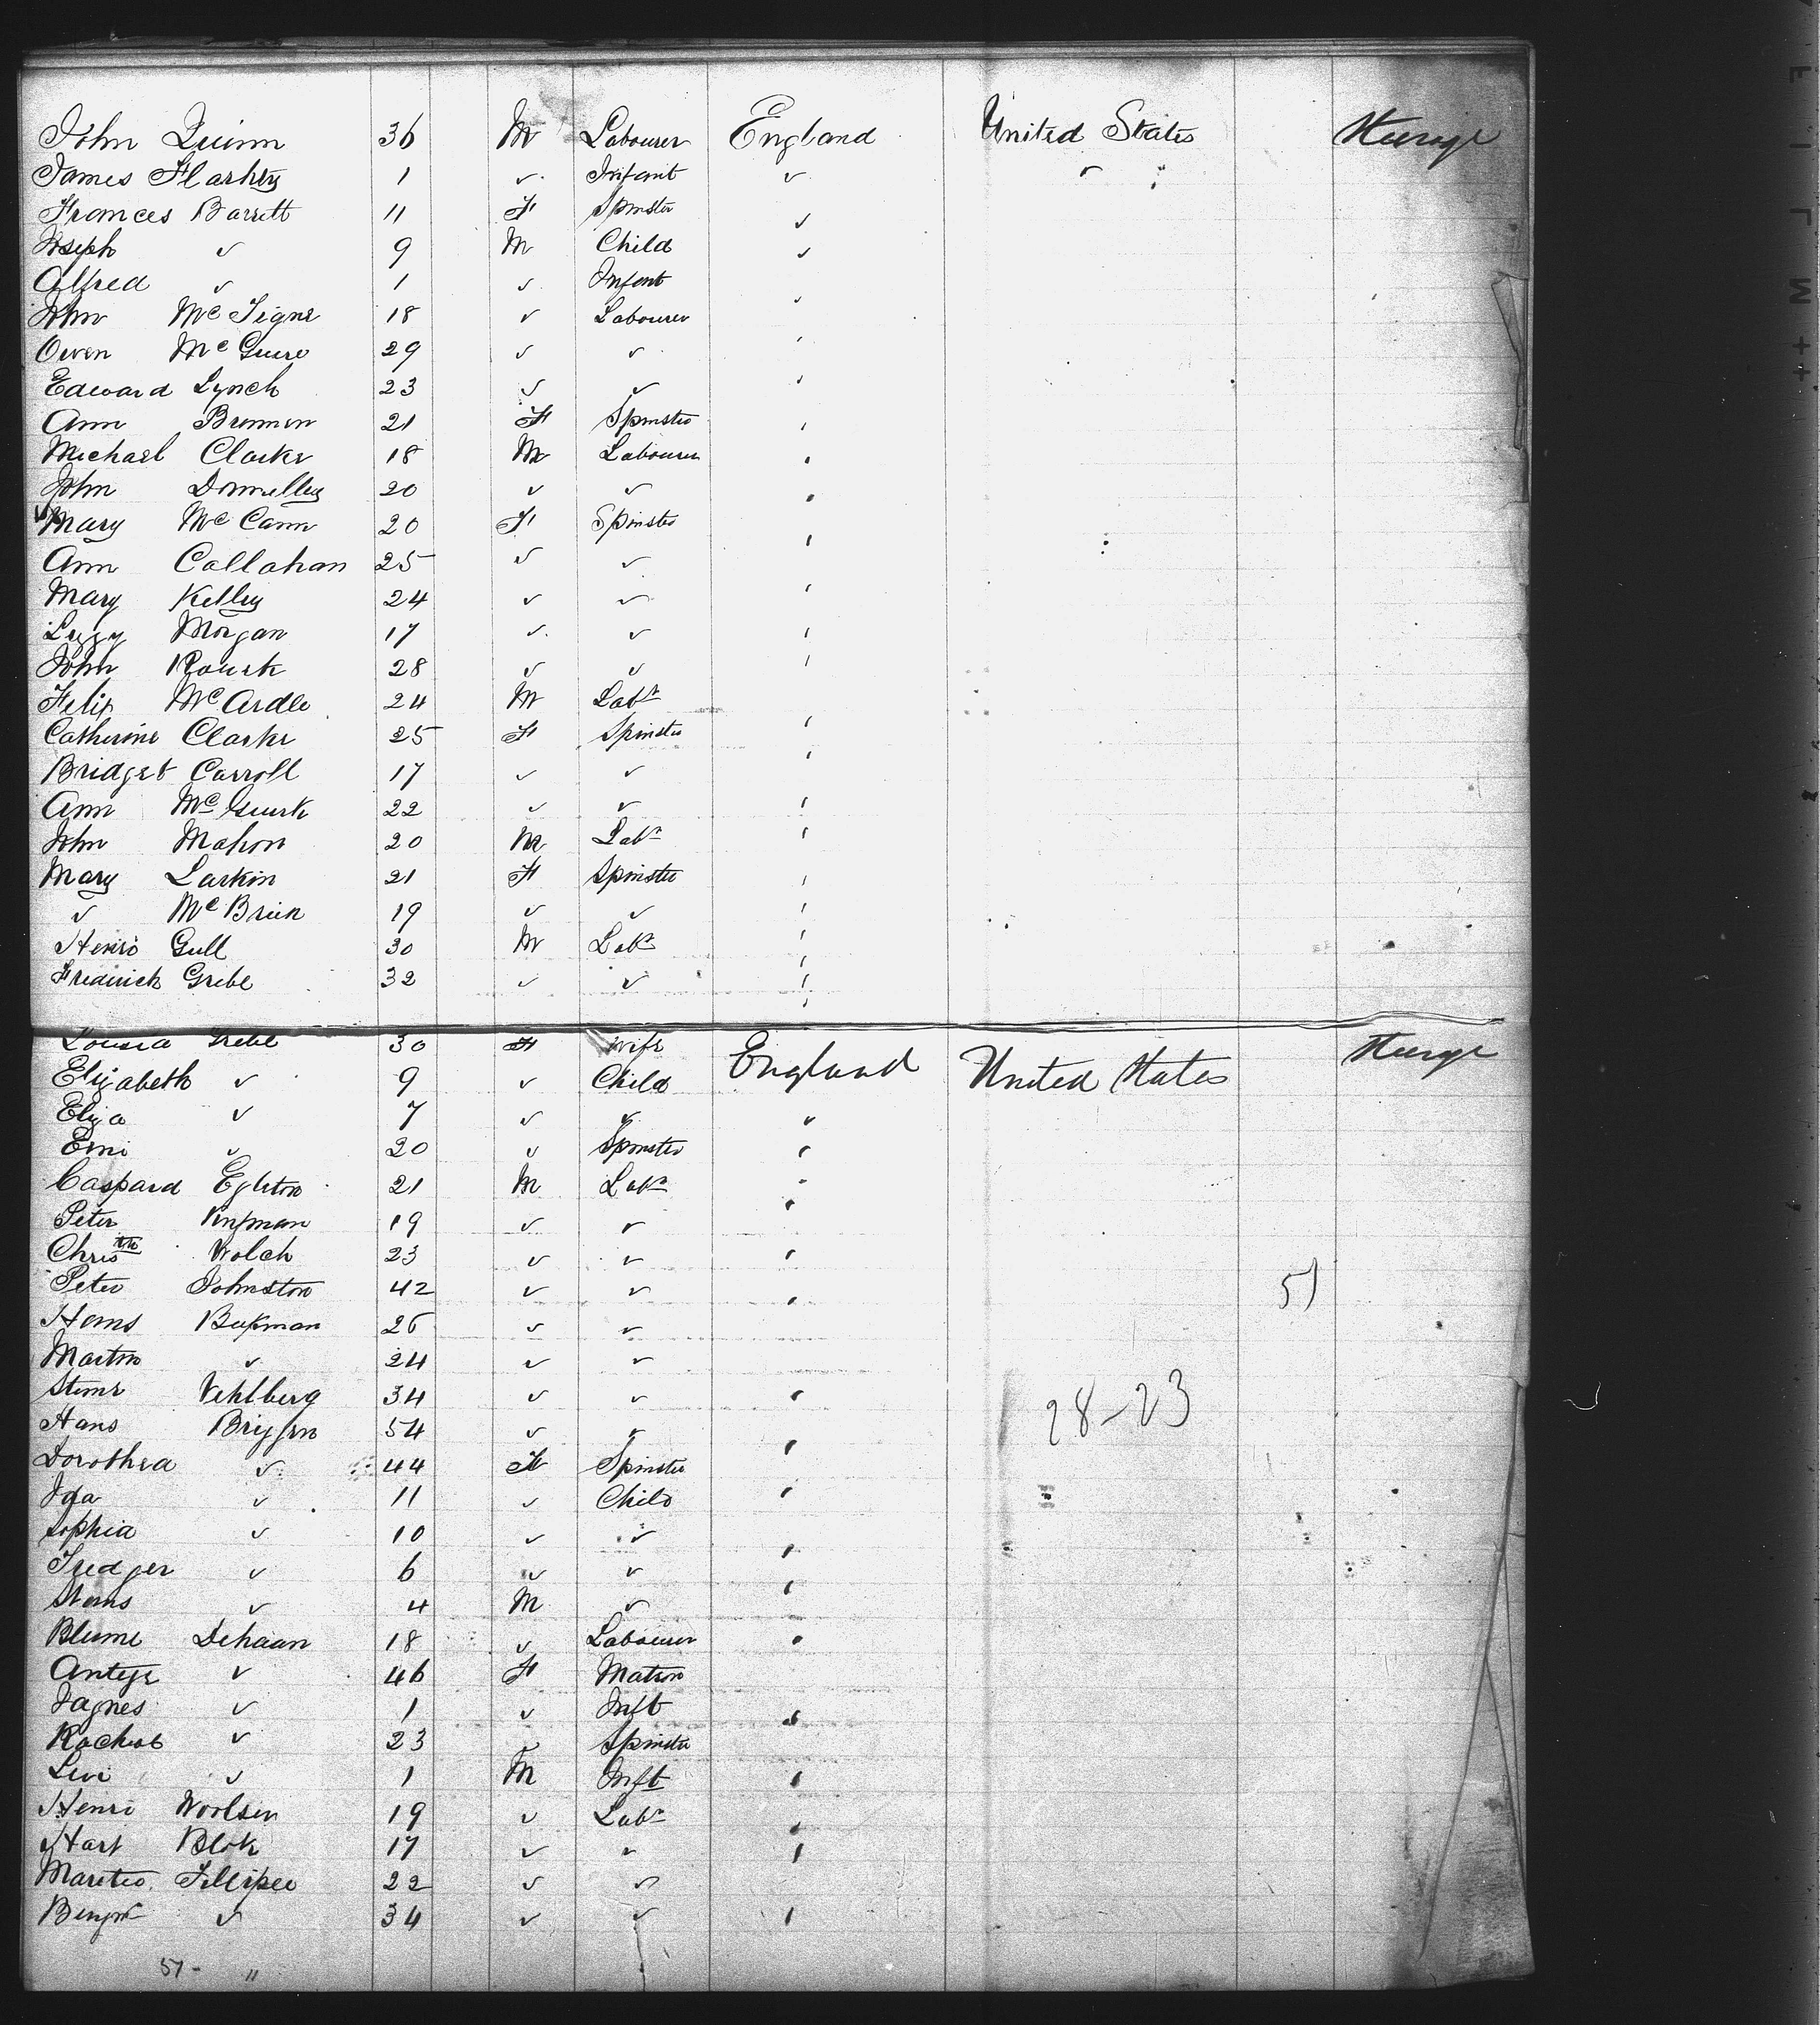 John Quinn 36 M Labourer England United States Steerage
James Flarkey 1 ✓ Infant ✓ ✓
Frances Barrett 11 F Spinster ✓
Joseph ✓ 9 M Child ✓
Alfred ✓ 1 ✓ Infant
John McTigne 18 ✓ Labourer
Owen McGuire 29 ✓ ✓
Edward Lynch 23 ✓ ✓
Ann Brennen 21 F Spinster
Michael Clarke 18 M Labourer
John Donnelley 20 ✓ ✓
Mary McCann 20 F Spinster
Ann Callahan 25 ✓ ✓
Mary Kelley 24 ✓ ✓
Lizzy Morgan 17 ✓ ✓
John Rourk 28 ✓ ✓
Felix McArdle 24 M Labr
Catherine Clarke 25 F Spinster
Bridget Carroll 17 ✓ ✓
Ann McGuirk 22 ✓ ✓
John Mahon 20 M Labr
Mary Larkin 21 F Spinster
✓ McBrien 19 ✓ ✓
Henri Gull 30 M Labr
Frederick Grebe 32 ✓ ✓
Lousia Grebe 30 F Wife England United States Steerage
Elizabeth ✓ 9 ✓ Child
Eliza ✓ 7 ✓ ✓
Erni ✓ 20 ✓ Spinster
Caspard Egleton 21 M Labr
Peter 19 ✓ ✓
Chris Wolch 23 ✓ ✓
Peter Johnston 42 ✓ ✓
51
Hems Bukman 26 ✓ ✓
Martin ✓ 24 ✓ ✓
Stems Vehlberg 34 ✓ ✓
28-23
Hans Briggen 54 ✓ ✓
Dorothea ✓ 44 F Spinster
Ida ✓ 11 ✓ Child
Sophia ✓ 10 ✓ ✓
Fredger ✓ 6 ✓ ✓
Stems ✓ 4 M ✓
Blume Dehaan 18 ✓ Labourer
Antege ✓ 46 F Matron
Jagnes ✓ 1 ✓ Inft
Rachel ✓ 23 ✓ Spinster
Levi ✓ 1 M Inft
Henri Woolsen 19 ✓ Labr
Hart Blok 17 ✓ ✓
Mariteo Fillipee 22 ✓ ✓
Benjn ✓ 34 ✓ ✓
51 - "